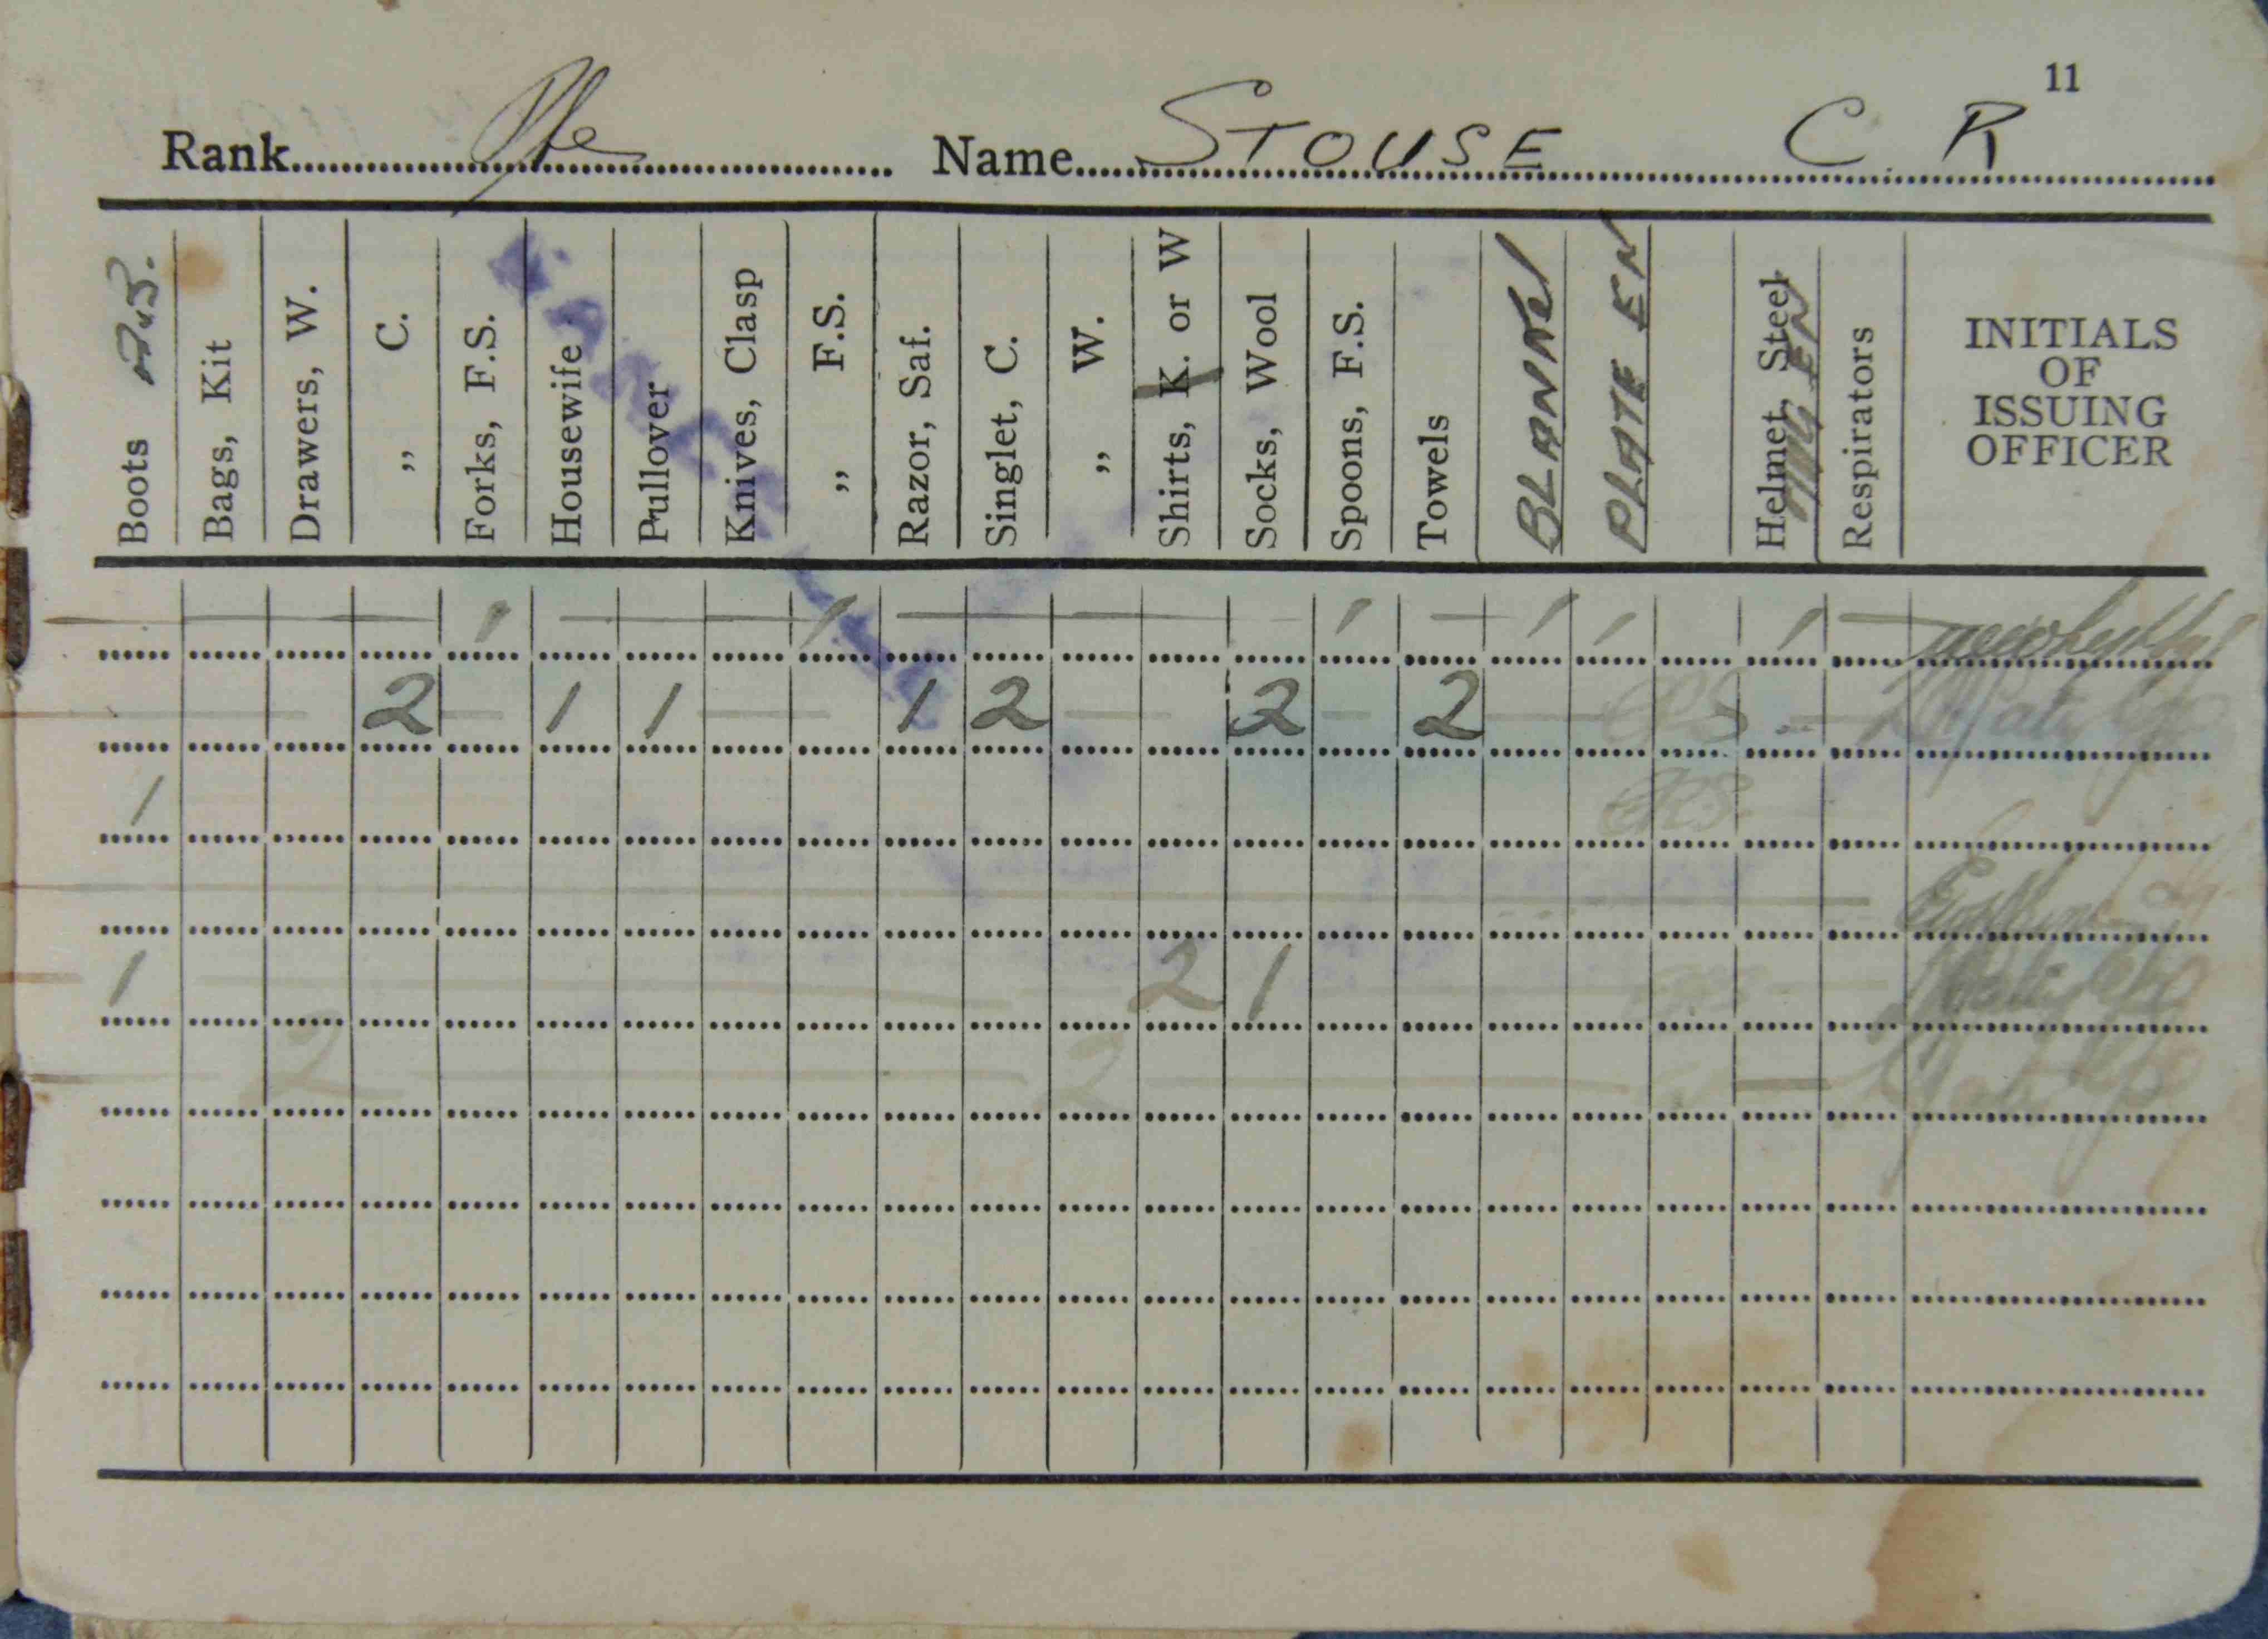 11
Rank Pte Name STOUSE C. R
Boots
Bags, Kit
Drawers, W.
„ C.
Forks, F.S.
Housewife
Pullover
Knives, Clasp
„ F.S.
Razor, Saf.
Singlet, C.
„ W.
Shirts, K. or W
Socks, Wool
Spoons, F.S.
Towels
BLANKET
PLATE EN
Helmet, Steel
MUG EN
Respirators
INITIALS
OF
ISSUING
OFFICER
— — — — 1 — — — 1 — — — 1 — 1 1 1 —
2 — 1 1 — 1 2 — 2 — 2 —
1
1 2 1
2 2